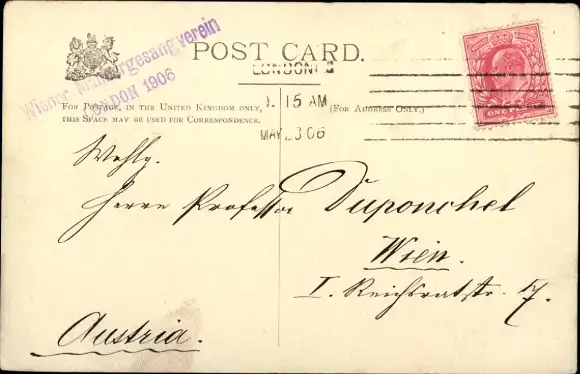 Wiener Männergesangverein
LONDON 1906
POST CARD.
LONDON
1. 15 AM
MAY 3 06
FOR POSTAGE, IN THE UNITED KINGDOM ONLY,
THIS SPACE MAY BE USED FOR CORRESPONDENCE.
(FOR ADDRESS ONLY.)
ONE PENNY
Wohlg.
Herrn Professor Duponchel
Wien.
I. Reichsratstr. 7.
Austria.